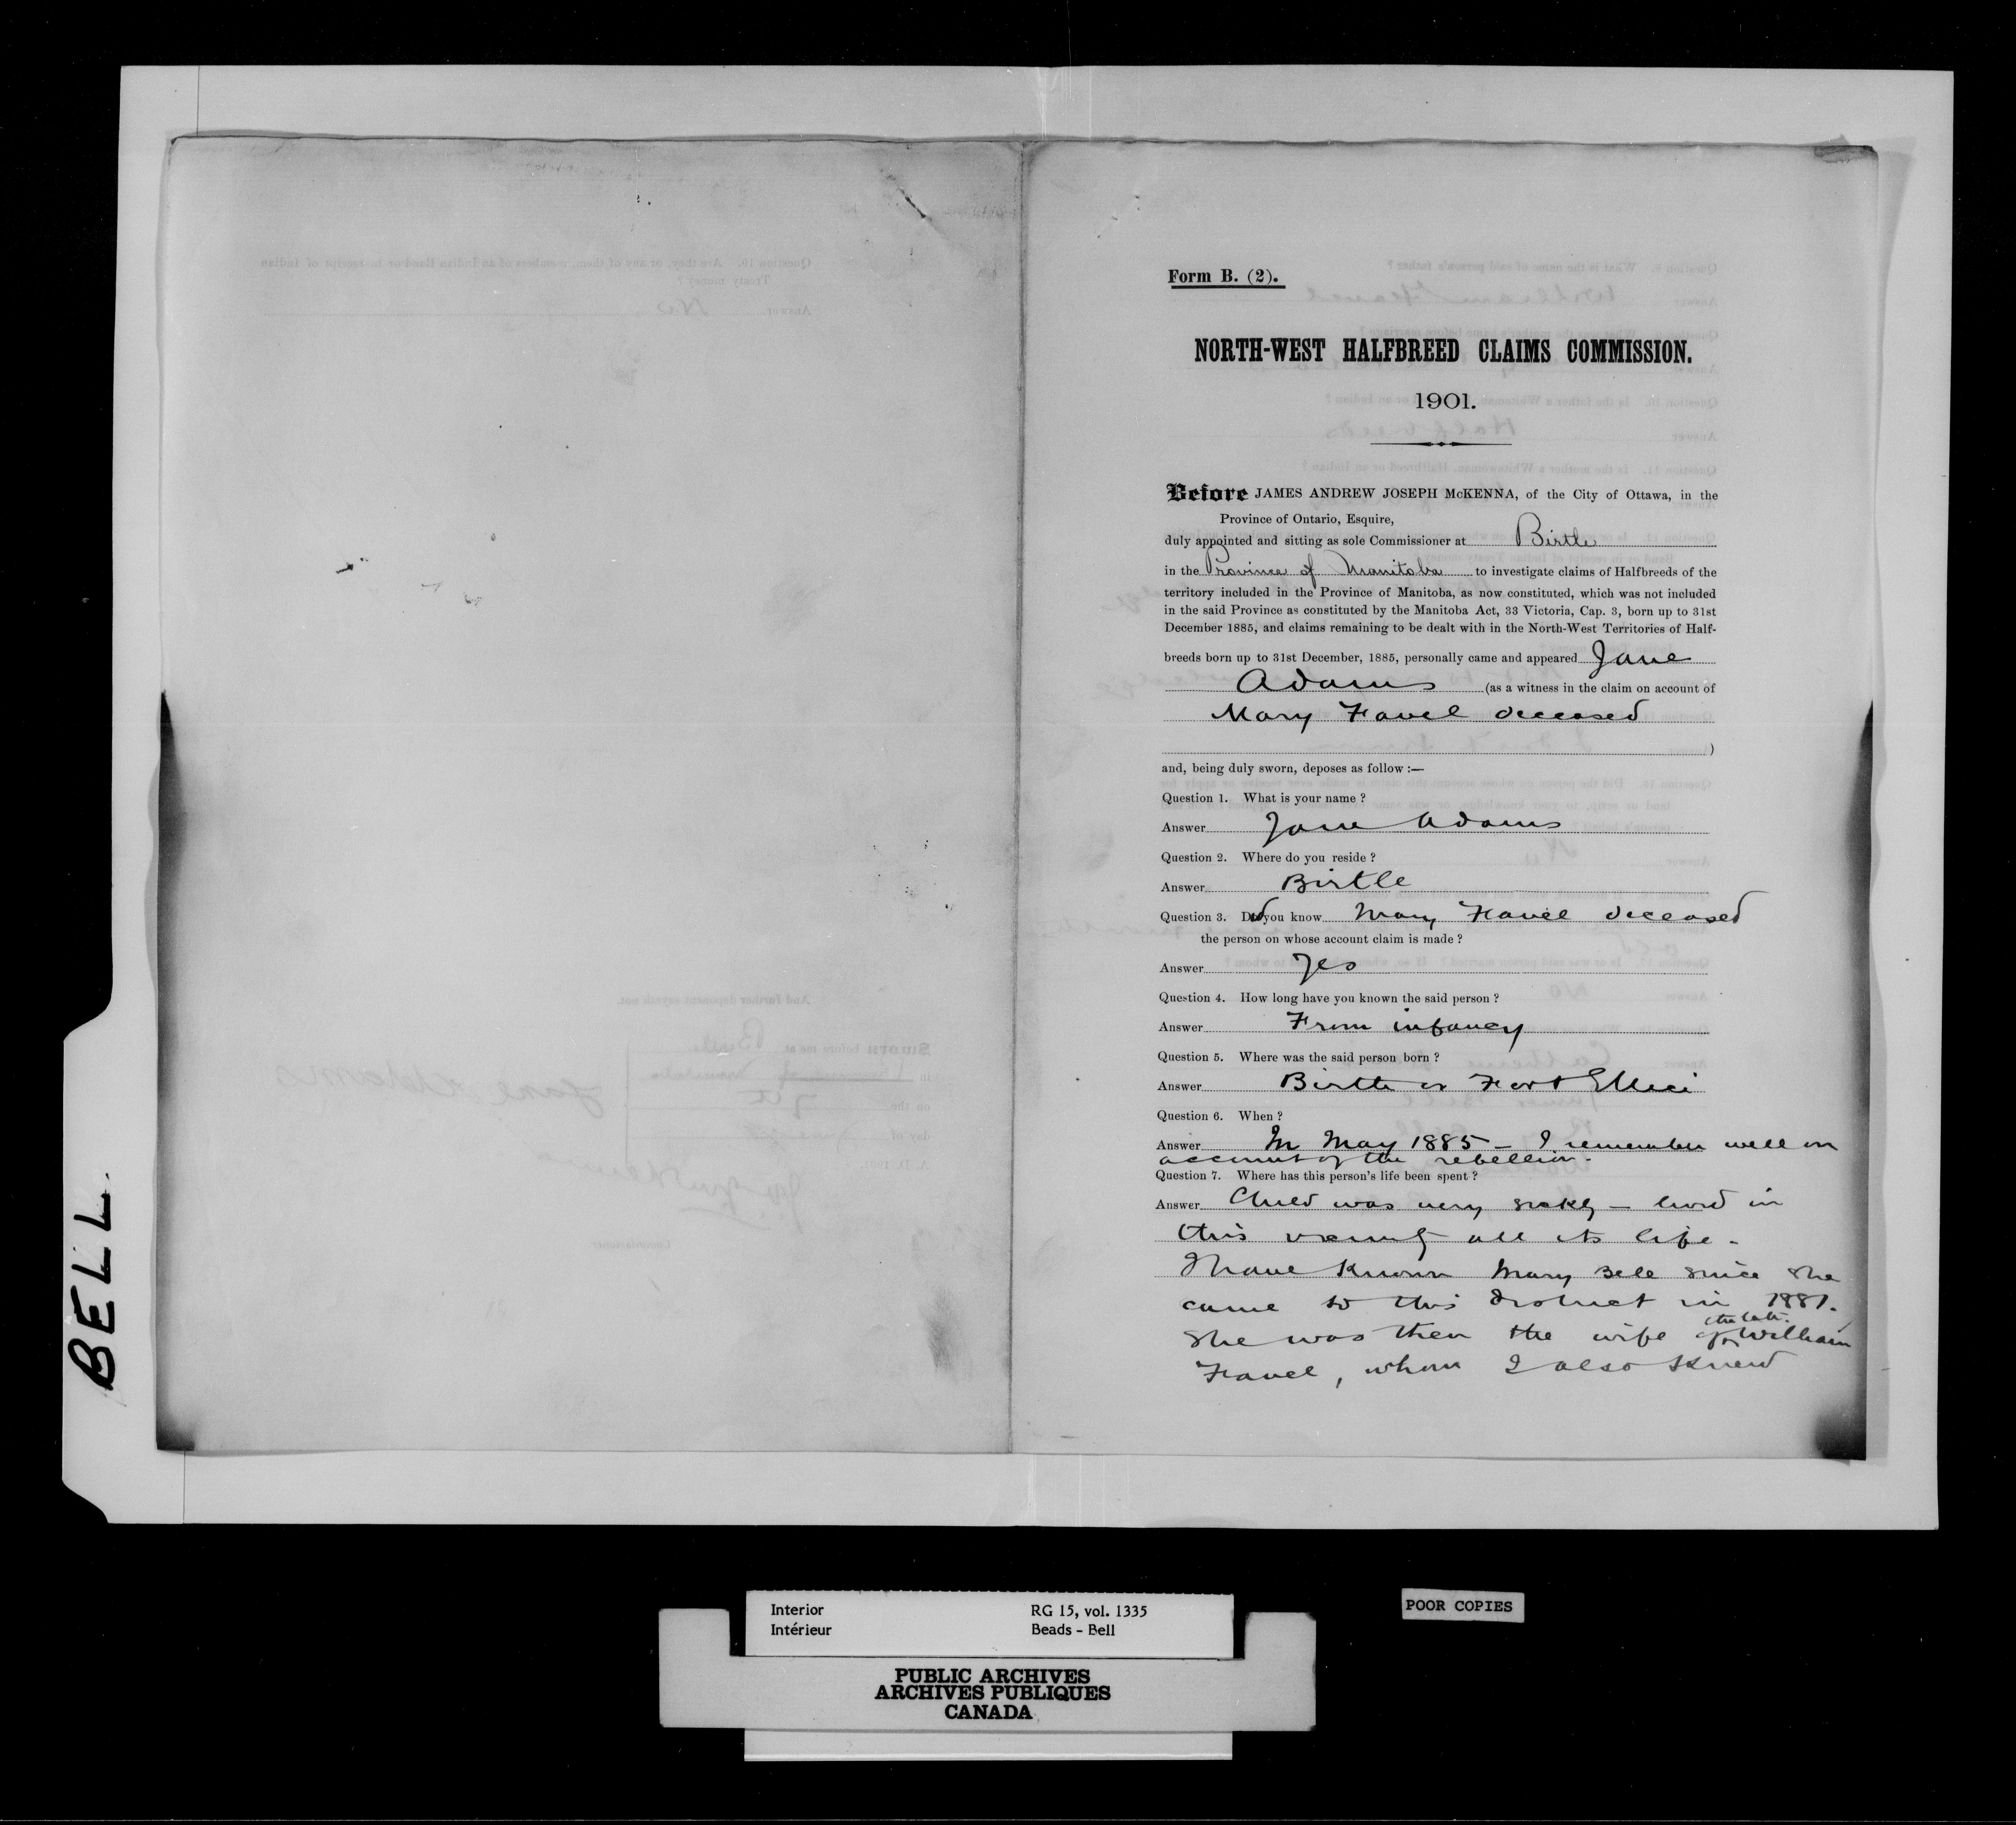 Form B. (2).
NORTH-WEST HALFBREED CLAIMS COMMISSION.
1901.
Before JAMES ANDREW JOSEPH McKENNA, of the City of Ottawa, in the
Province of Ontario, Esquire,
duly appointed and sitting as sole Commissioner at Birtle
in the Province of Manitoba to investigate claims of Halfbreeds of the
territory included in the Province of Manitoba, as now constituted, which was not included
in the said Province as constituted by the Manitoba Act, 33 Victoria, Cap. 3, born up to 31st
December 1885, and claims remaining to be dealt with in the North-West Territories of Half-
breeds born up to 31st December, 1885, personally came and appeared Jane
Adams (as a witness in the claim on account of
Mary Favel deceased
)
and, being duly sworn, deposes as follow :—
Question 1. What is your name ?
Answer Jane Adams
Question 2. Where do you reside ?
Answer Birtle
Question 3. Did you know Mary Favel deceased
the person on whose account claim is made ?
Answer Yes
Question 4. How long have you known the said person ?
Answer From infancy
Question 5. Where was the said person born ?
Answer Birtle or Fort Ellice
Question 6. When ?
Answer In May 1885 – I remember well on
account of the rebellion.
Question 7. Where has this person's life been spent ?
Answer Child was very sickly – lived in
this vicinity all its life -
I have known Mary Bell since she
came to this district in 1881.
She was then the wife of the late William
Favel, whom I also knew
BELL.
Interior
Intérieur
RG 15, vol. 1335
Beads - Bell
PUBLIC ARCHIVES
ARCHIVES PUBLIQUES
CANADA
POOR COPIES